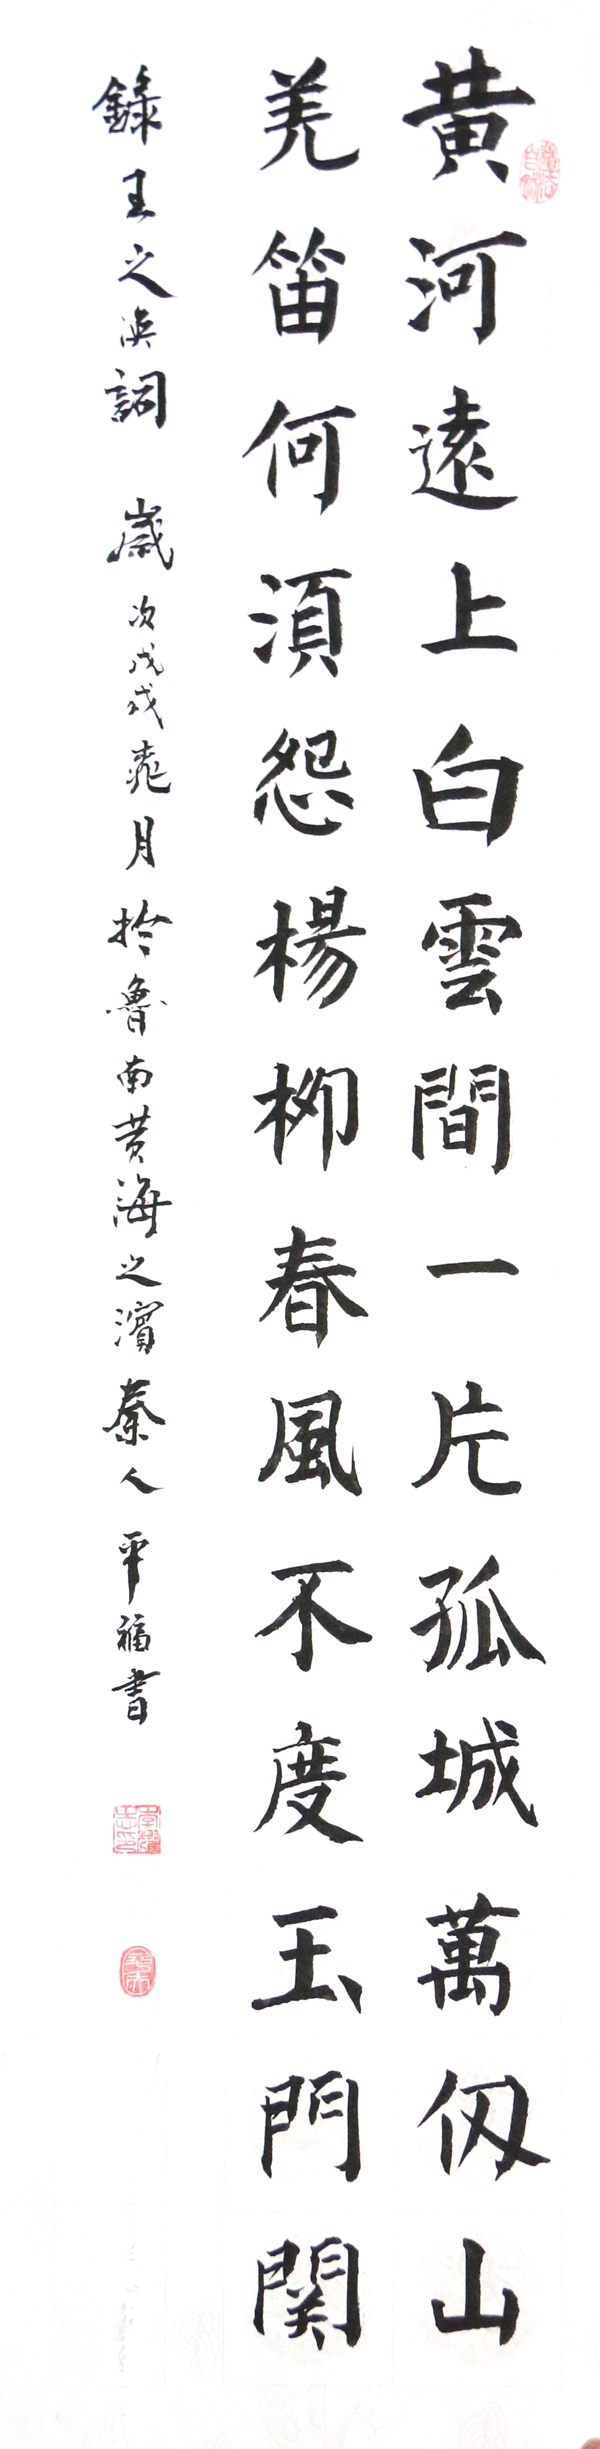 黃河遠上白雲間一片孤城萬仞山
羌笛何須怨楊柳春風不度玉門関
錄王之渙詞 歲次戊戌桃月於魯南黄海之濱秦人平福書